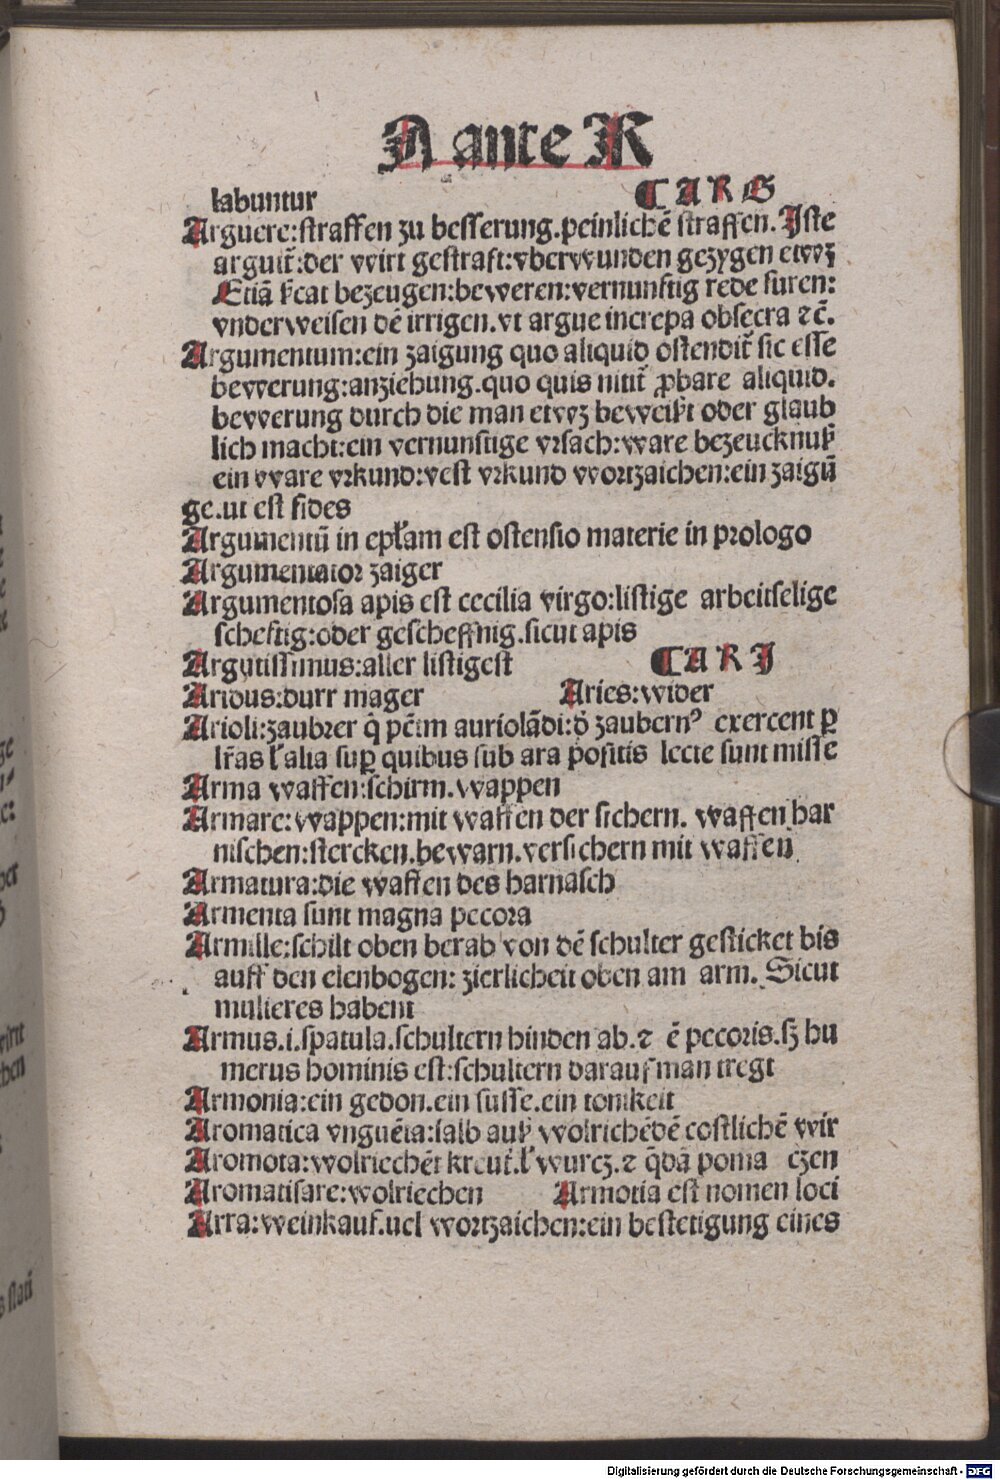 A ante R
labuntur ¶ A R G
Arguere:straffen zu besserung.peinlichē straffen. Iste
arguit̄:der wirt gestraft:vberwunden gezygen etwz
Etiā ſcat bezeugen:beweren:vernunftig rede furen:
vnderweisen dē irrigen.vt argue increpa obsecra ⁊c̄.
Argumentum:ein zaigung quo aliquid ostendit̄ sic esse
bewerung:anziehung.quo quis nitit̄ ꝓbare aliquid.
bewerung durch die man etwz beweißt oder glaub
lich macht:ein vernunftige vrsach:ware bezeucknuß
ein ware vrkund:vest vrkund wortzaichen:ein zaigū
ge.ut est fides
Argumentū in epl̄am est ostensio materie in prologo
Argumentator zaiger
Argumentosa apis est cecilia virgo:listige arbeitselige
scheftig:oder gescheffnig.sicut apis
Argutissimus:aller listigest ¶ A R I
Aridus:durr mager Aries:wider
Arioli:zaubrer q̄ pc̄im auriolādi:ꝺ̓ zaubernꝰ exercent ꝑ
lr̄as l̓ alia suꝑ quibus sub ara positis lecte sunt misse
Arma waffen:schirm.wappen
Armare:wappen:mit waffen der sichern. waffen har
nischen:stercken.bewarn.versichern mit waffen
Armatura:die waffen des harnasch
Armenta sunt magna pecora
Armille:schilt oben herab von dē schulter gesticket bis
auff den elenbogen: zierlicheit oben am arm. Sicut
mulieres habent
Armus.i.spatula.schultern hinden ab.⁊ ē pecoris.sꝫ hu
merus hominis est:schultern darauf man tregt
Armonia:ein gedon.ein susse.ein tonikeit
Aromatica vnguēta:salb auß wolrichēdē costlichē wir
Aromota:wolriechēt kreut̄.l̓ wurcz.⁊ q̄dā poma czen
Aromatisare:wolriechen Armotia est nomen loci
Arra:weinkauf.uel wortzaichen:ein bestetigung eines
Digitalisierung gefördert durch die Deutsche Forschungsgemeinschaft - DFG